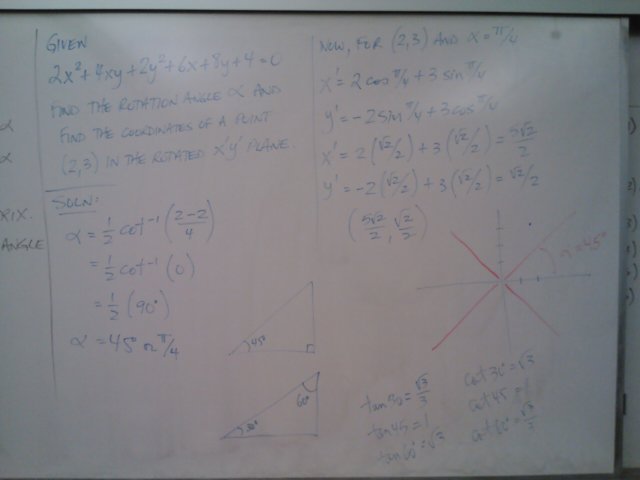 GIVEN
2x² + 4xy + 2y² + 6x + 8y + 4 = 0
FIND THE ROTATION ANGLE α AND
FIND THE COORDINATES OF A POINT
(2,3) IN THE ROTATED x'y' PLANE.
SOLN:
α = 1/2 cot⁻¹ (2-2/4)
= 1/2 cot⁻¹ (0)
= 1/2 (90°)
α = 45° or π/4
45°
60°
30°
NOW, FOR (2,3) AND α = π/4
x' = 2 cos π/4 + 3 sin π/4
y' = -2 sin π/4 + 3 cos π/4
x' = 2 (√2/2) + 3 (√2/2) = 5√2/2
y' = -2 (√2/2) + 3 (√2/2) = √2/2
(5√2/2, √2/2)
= 45°
tan 30 = √3/3
tan 45 = 1
tan 60° = √3
cot 30° = √3
cot 45 = 1
cot 60° = √3/3
α
α
RIX.
ANGLE